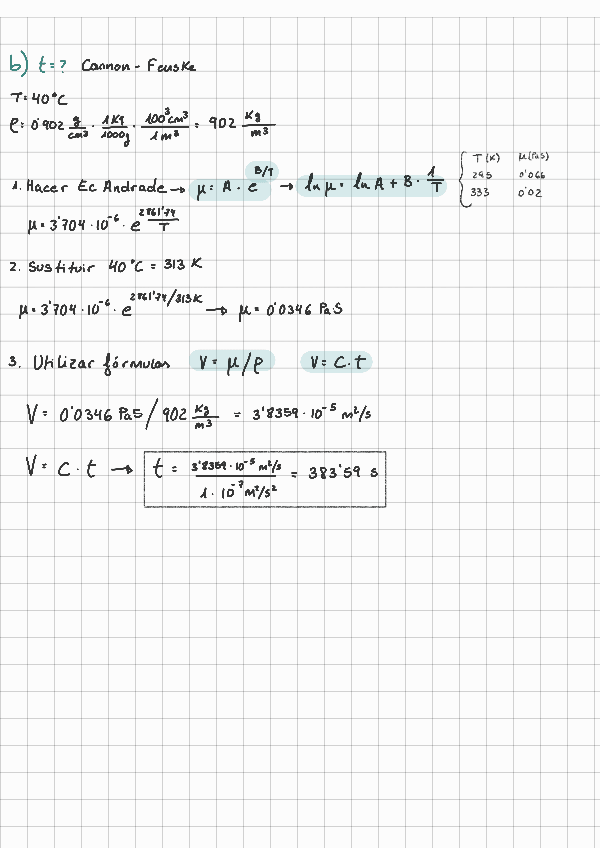 b) t=? Cannon-Fenske
T=40°C
ρ=0'902 g/cm³ · 1Kg/1000g · 100³cm³/1m³ = 902 Kg/m³
1. Hacer Ec Andrade → μ = A · e^(B/T) → ln μ = ln A + B · 1/T
T(K) μ(PaS)
295 0'066
333 0'02
μ = 3'704 · 10⁻⁶ · e^(2861'74/T)
2. Sustituir 40°C = 313 K
μ = 3'704 · 10⁻⁶ · e^(2861'74/313K) → μ = 0'0346 PaS
3. Utilizar fórmulas V = μ/ρ V = C·t
V = 0'0346 PaS / 902 Kg/m³ = 3'8359 · 10⁻⁵ m²/s
V = C · t → t = 3'8359 · 10⁻⁵ m²/s / 1 · 10⁻⁷ m²/s² = 383'59 s